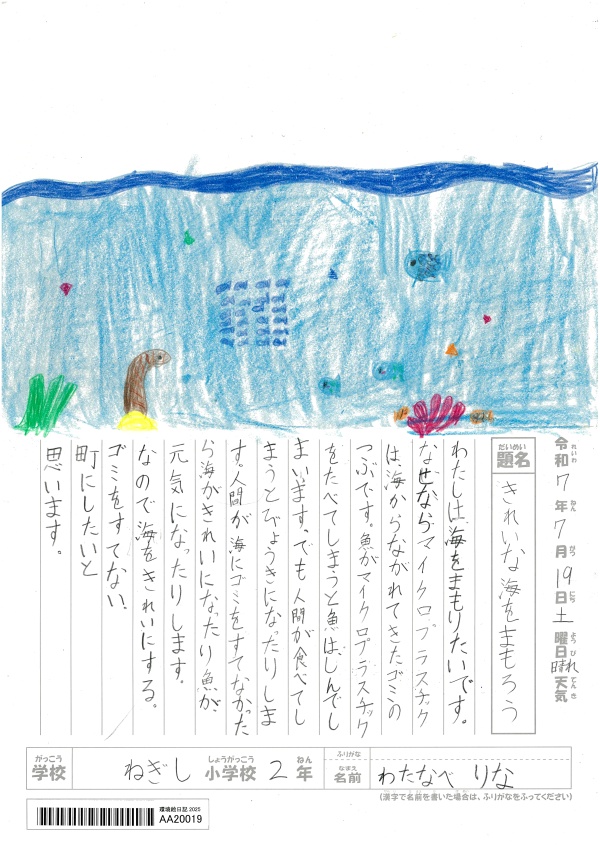 令和7年7月19日土曜日晴れ天気
れいわ ねん がつ にち ようび てんき
だいめい
題名
きれいな海をまもろう
わたしは、海をまもりたいです。
なぜならマイクロプラスチック
は、海からながれてきたゴミの
つぶです。魚がマイクロプラスチック
をたべてしまうと魚は、しんでし
まいます。でも人間が食べてし
まうとびょうきになったりしま
す。人間が海にゴミをすてなかった
ら海がきれいになったり魚が、
元気になったりします。
なので海をきれいにする。
ゴミをすてない、
町にしたいと
思います。
がっこう しょうがっこう ねん
学校 ねぎし 小学校 2年
ふりがな
なまえ
名前 わたなべ りな
(漢字で名前を書いた場合は、ふりがなをふってください)
環境絵日記 2025
AA20019